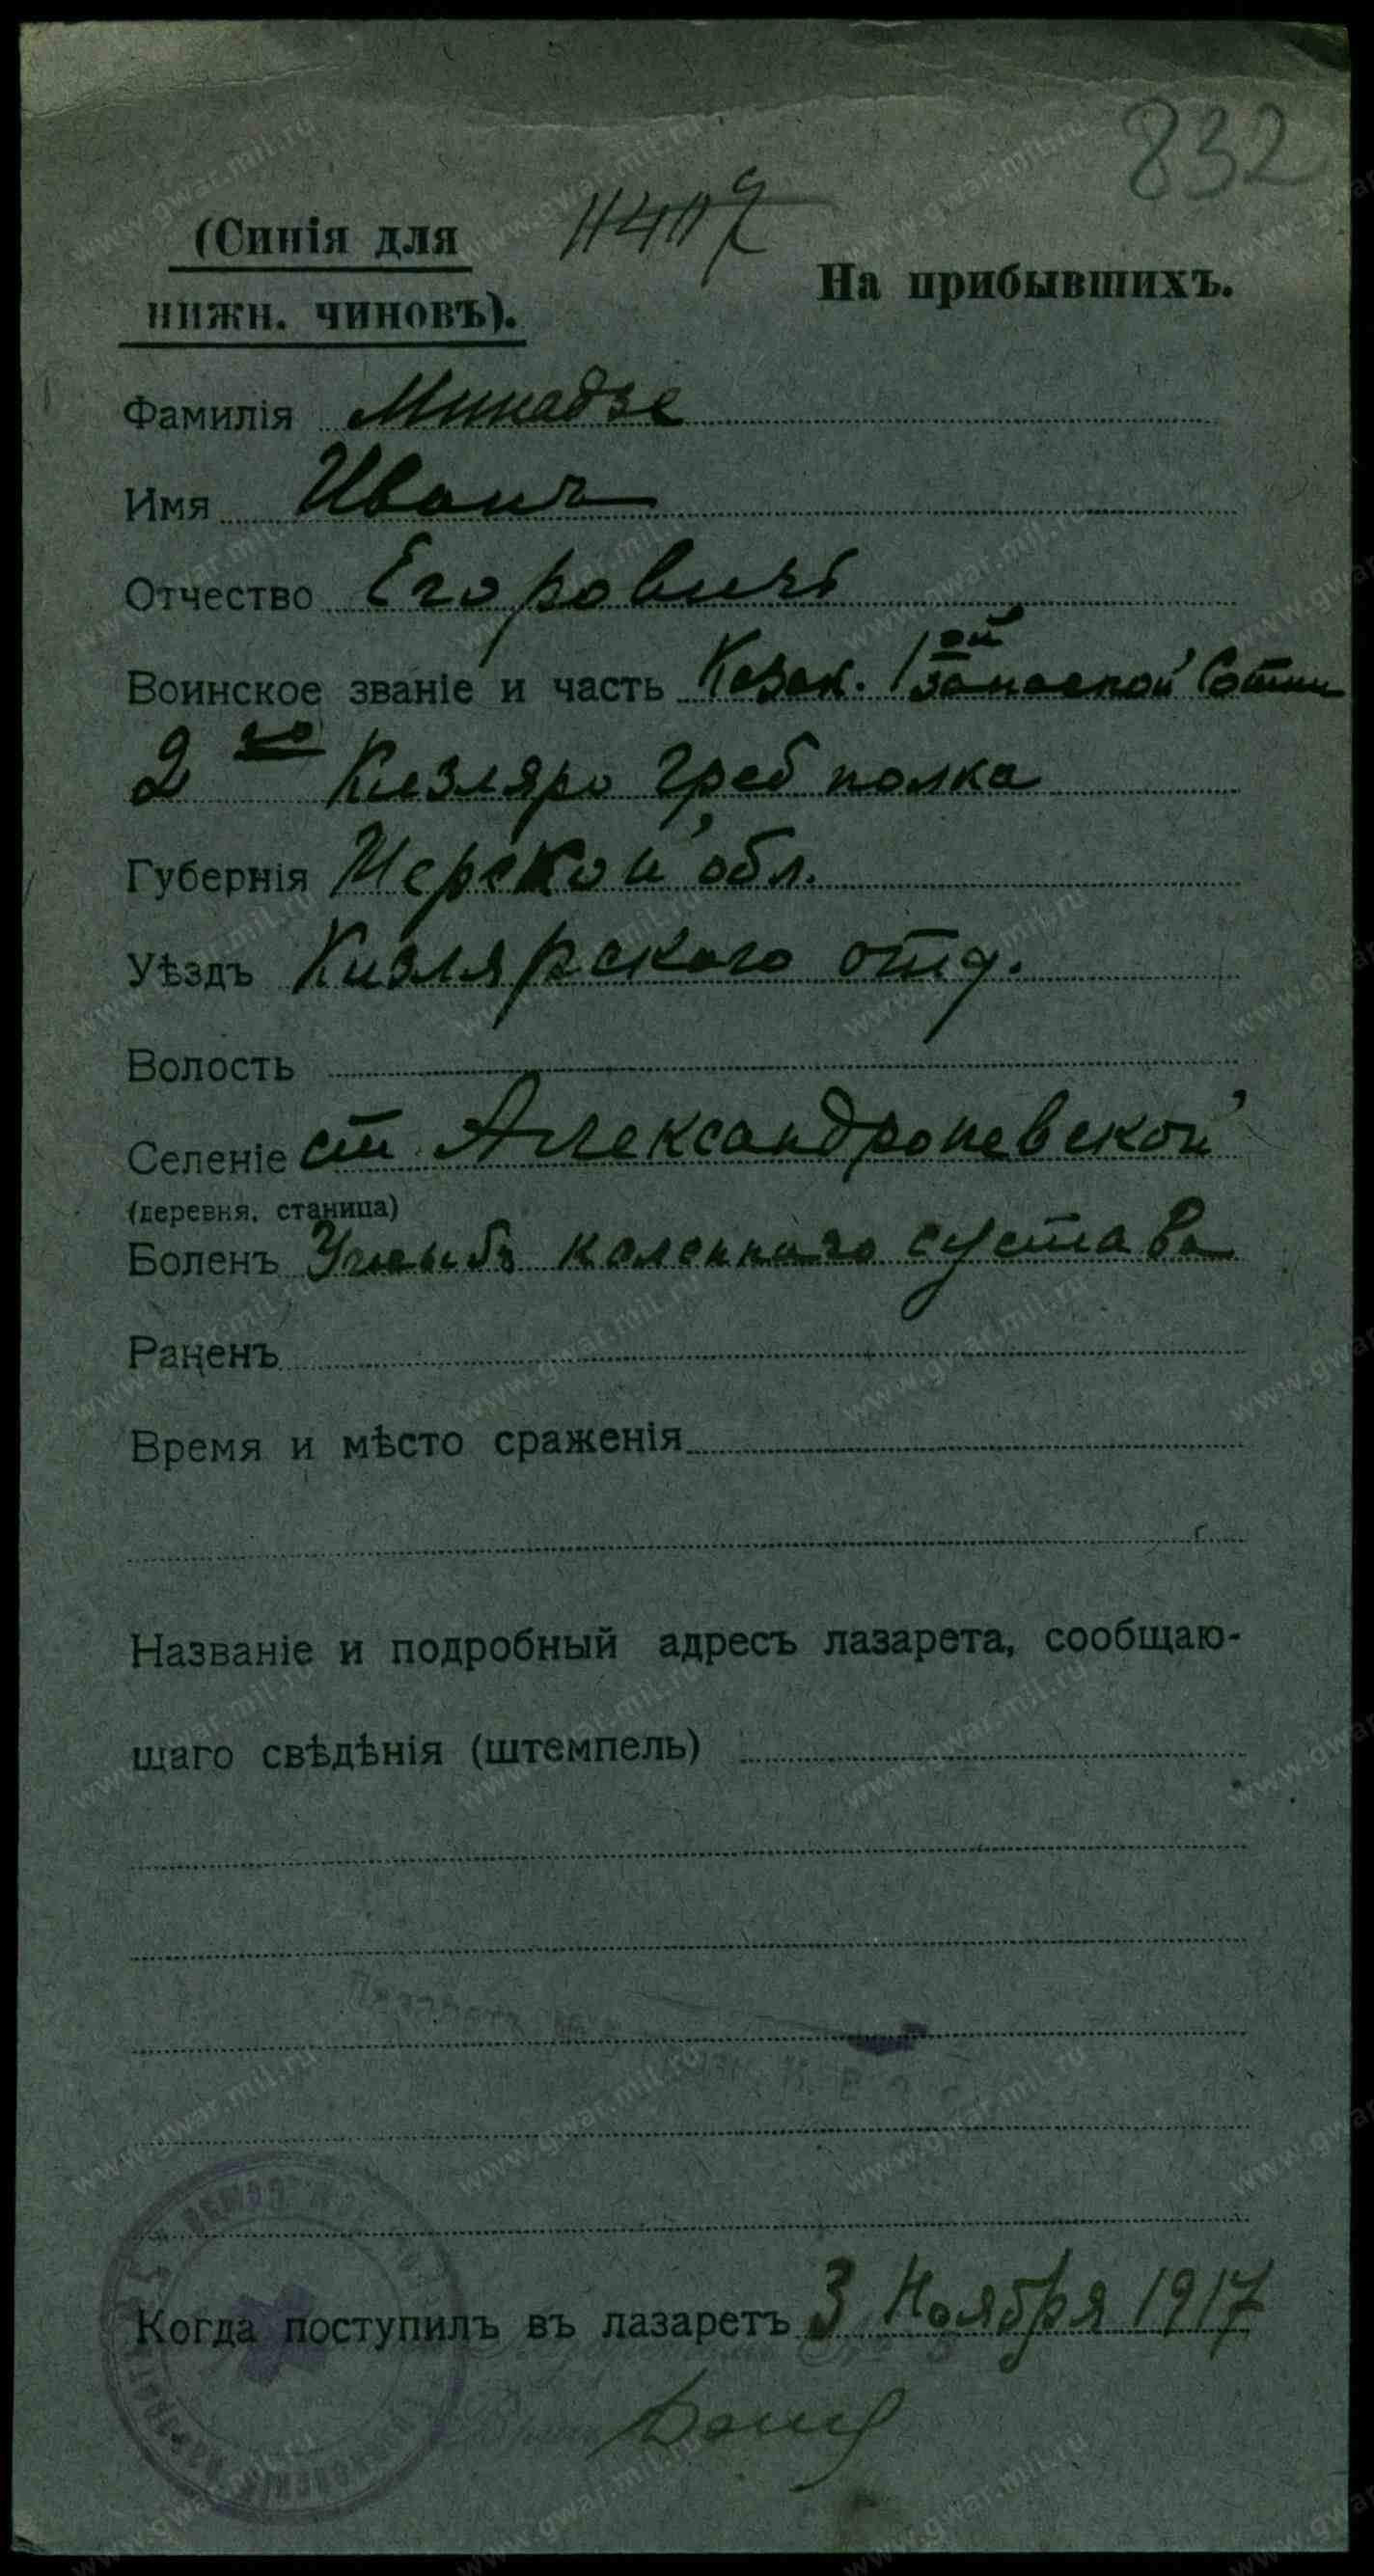 832
(Синія для
нижн. чиновъ).
На прибывшихъ.
Фамилія Минадзе
Имя Иванъ
Отчество Егоровичъ
Воинское званіе и часть Казак. 1ой запасной Сотни
2го Кизляро Греб полка
Губернія Терской обл.
Уѣздъ Кизлярского отд.
Волость
Селеніе ст Александроневской
(деревня, станица)
Боленъ Ушибъ коленнаго сустава
Раненъ
Время и мѣсто сраженія
Названіе и подробный адресъ лазарета, сообщаю-
щаго свѣдѣнія (штемпель)
Когда поступилъ въ лазаретъ 3 Ноября 1917
www.gwar.mil.ru